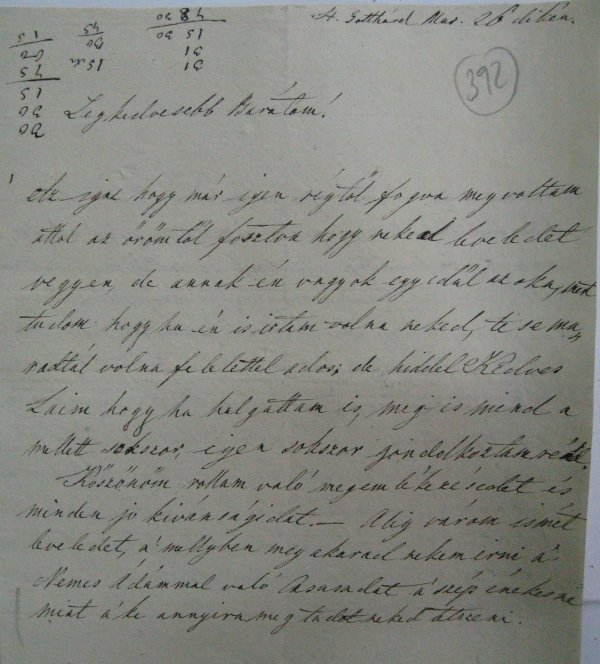 Sz. Gotthárd Mar. 26dikán.
392
48 30
15 30
31
31
45
30
15
15
62
75
15
30
30
Legkedvesebb Barátom!
Az igaz hogy már igen régtől fogva megvoltam
attól az örömtől fosztva hogy neked leveledet
vegyem, de annak én vagyok egyedül az oka, mert
tudom hogy ha én is irtam volna neked, te se ma-
radtál volna felelettel adós; de hiddel Kedves
hogy ha halgattam is, meg is mind a
mellett sokszor, igen sokszor gondolkoztam
Köszönöm rollam való megemlékezésedet és
minden jo kivánságidat. — Alig várom ismét
leveledet, a' mellyben meg akarad nekem irni, a'
Nemes Ádámmal való a' szép énekesné
miat a'ki annyira meg tudot neked tetszeni.